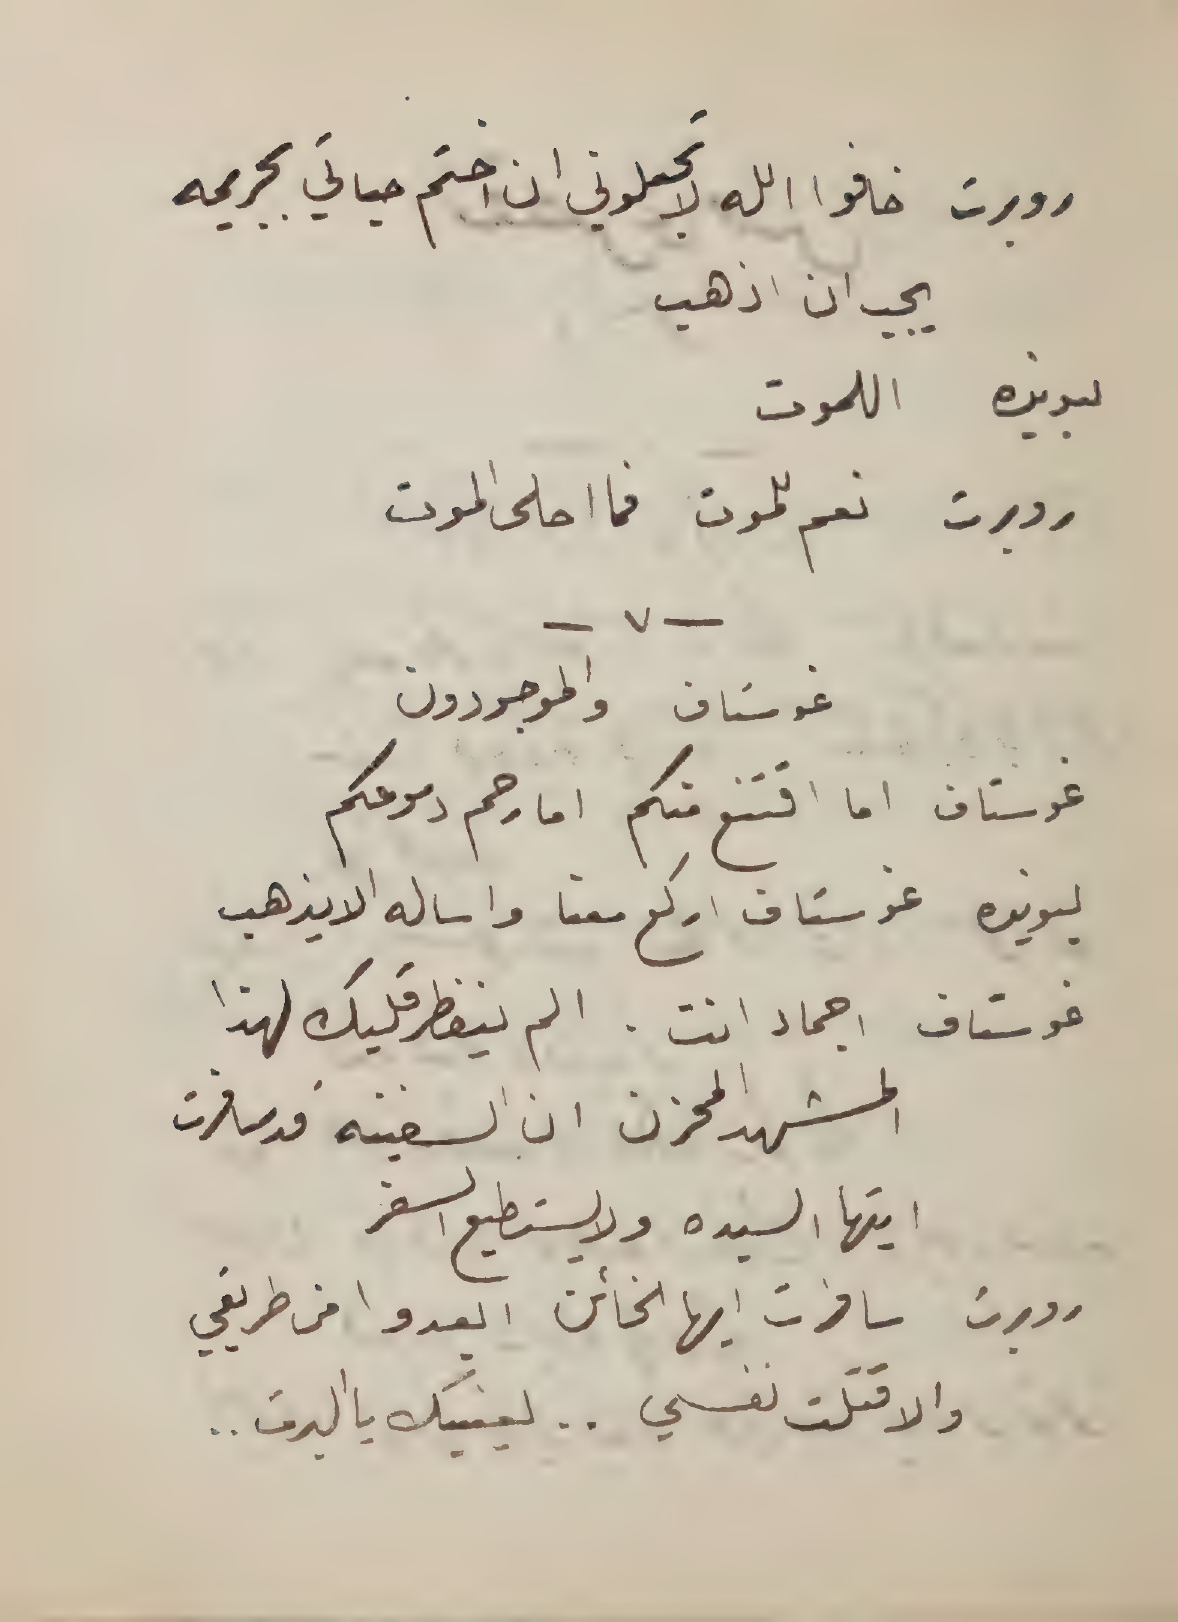 روبرت خافوا الله لا تجعلوني ان اختم حياتي بجريمه
يجب ان اذهب
ليونيده اللموت
روبرت نعم للموت فما احلى الموت
— ٧ —
غوستاف والموجودون
غوستاف اما اقتنع منكم اما رحم دموعكم
ليونيده غوستاف اركع معنا واساله الا يذهب
غوستاف اجماد انت . الم ينفطر قلبك لهذا
المشهد المحزن ان السفينه قد سافرت
ايتها السيده ولا يستطيع السفر
روبرت سافرت ايها الخائن ابعدوا من طريقي
والا قتلت نفسي .. ليهنيك يا البرت ..